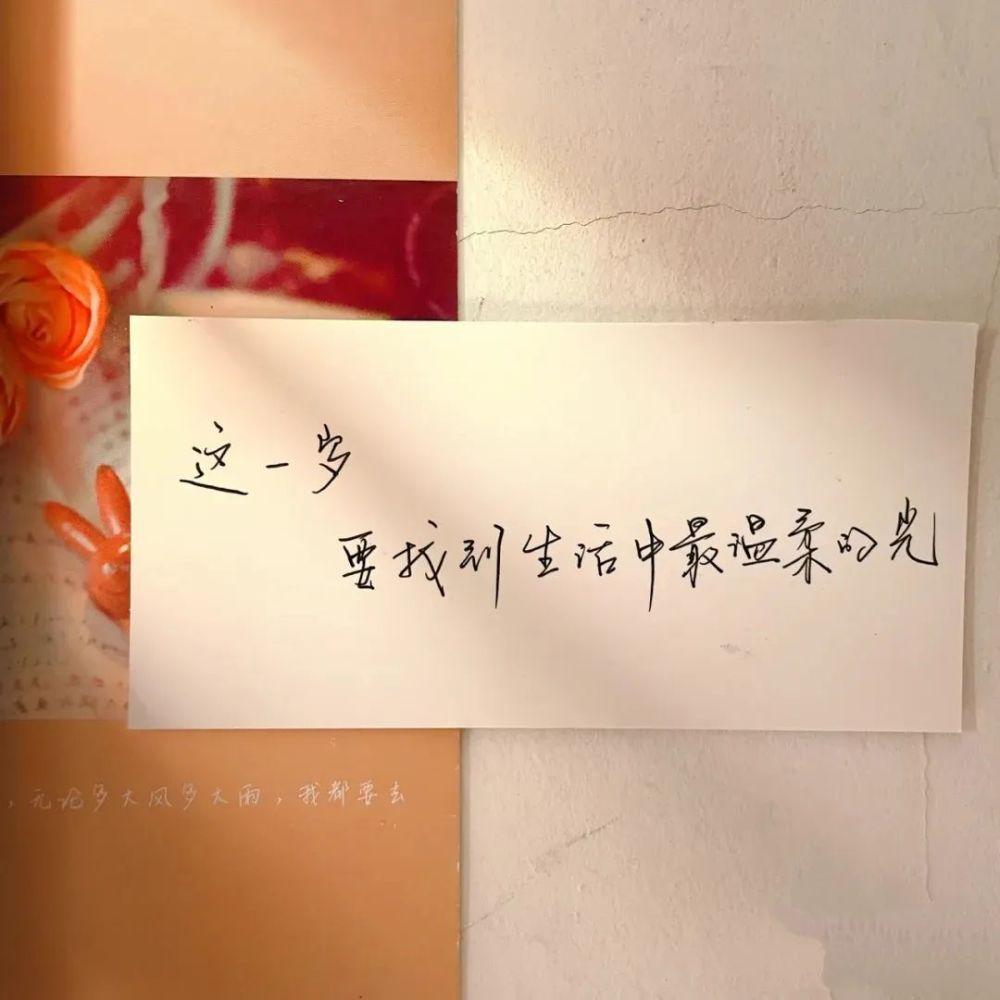 这一岁
要找到生活中最温柔的光
，无论多大风多大雨，我都要去